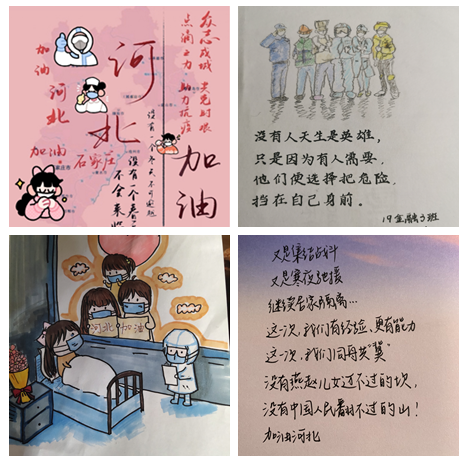 众志成城 共克时艰
点滴之力 助力抗疫
加油
河北
加油
石家庄
河北
没有一个冬天不可逾越
没有一个春天不会来临
加油
没有人天生是英雄，
只是因为有人需要，
他们便选择把危险，
挡在自己身前。
19金融3班
河北加油
又是集结战斗
又是寒夜驰援
继续居家隔离…
这一次，我们有经验，更有能力
这一次，我们同舟共“冀”
没有燕赵儿女过不过的坎，
没有中国人民翻不过的山！
加油河北